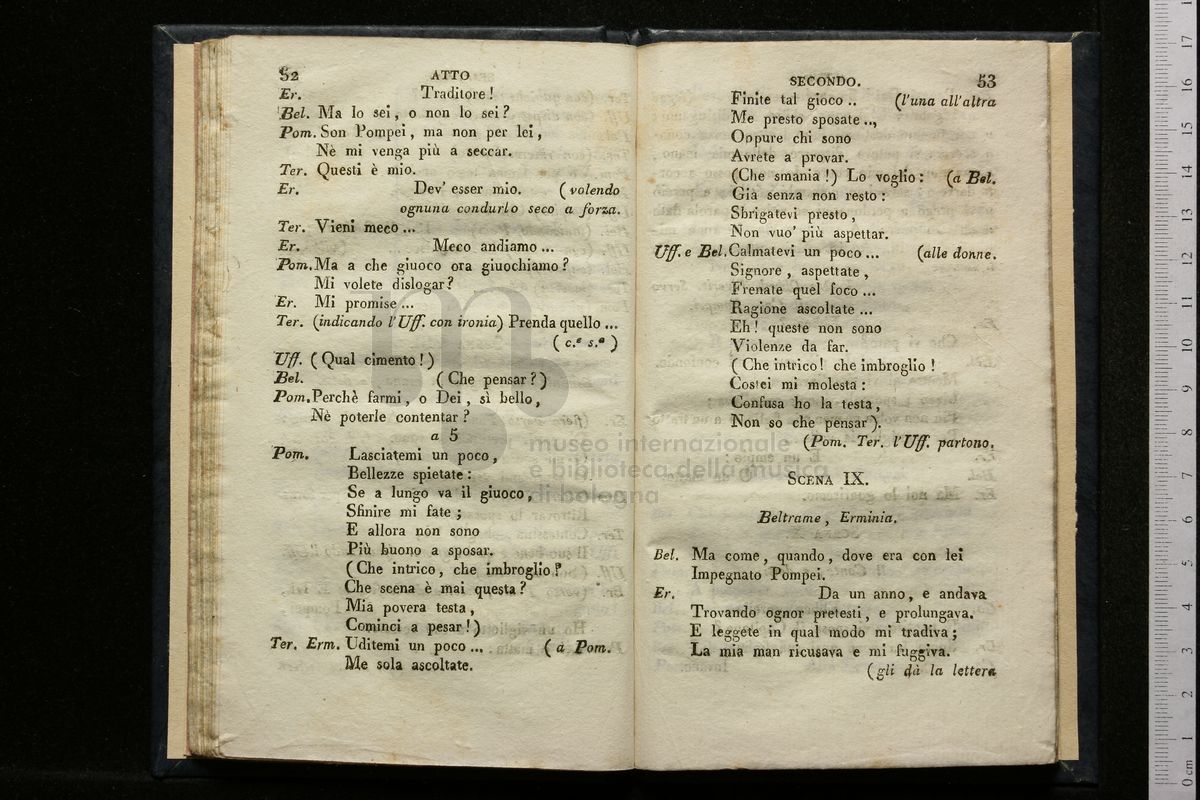 52 ATTO
Er. Traditore!
Bel. Ma lo sei, o non lo sei?
Pom. Son Pompei, ma non per lei,
Nè mi venga più a seccar.
Ter. Questi è mio.
Er. Dev' esser mio. (volendo
ognuna condurlo seco a forza.
Ter. Vieni meco ...
Er. Meco andiamo ...
Pom. Ma a che giuoco ora giuochiamo?
Mi volete dislogar?
Er. Mi promise ...
Ter. (indicando l'Uff. con ironia) Prenda quello ...
(c.e s.a)
Uff. (Qual cimento!)
Bel. (Che pensar?)
Pom. Perchè farmi, o Dei, sì bello,
Nè poterle contentar?
a 5
Pom. Lasciatemi un poco,
Bellezze spietate:
Se a lungo va il giuoco,
Sfinire mi fate;
E allora non sono
Più buono a sposar.
(Che intrico, che imbroglio?
Che scena è mai questa?
Mia povera testa,
Cominci a pesar!)
Ter. Erm. Uditemi un poco ... (a Pom.
Me sola ascoltate.
SECONDO. 53
Finite tal gioco .. (l'una all'altra
Me presto sposate ..,
Oppure chi sono
Avrete a provar.
(Che smania!) Lo voglio: (a Bel.
Già senza non resto:
Sbrigatevi presto,
Non vuo' più aspettar.
Uff. e Bel. Calmatevi un poco ... (alle donne.
Signore, aspettate,
Frenate quel foco ...
Ragione ascoltate ...
Eh! queste non sono
Violenze da far.
(Che intrico! che imbroglio!
Costei mi molesta:
Confusa ho la testa,
Non so che pensar).
(Pom. Ter. l'Uff. partono.
SCENA IX.
Beltrame, Erminia.
Bel. Ma come, quando, dove era con lei
Impegnato Pompei.
Er. Da un anno, e andava
Trovando ognor pretesti, e prolungava.
E leggete in qual modo mi tradiva;
La mia man ricusava e mi fuggiva.
(gli dà la lettera
museo internazionale
e biblioteca della musica
di bologna
0 cm 1 2 3 4 5 6 7 8 9 10 11 12 13 14 15 16 17